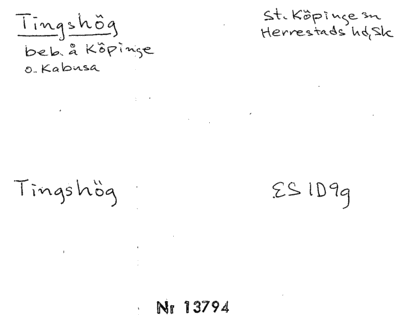 Tingshög
beb. å Köpinge
o. Kabusa
St. Köpinge sn
Herrestads hd, Sk
Tingshög
ES 1D9g
Nr 13794